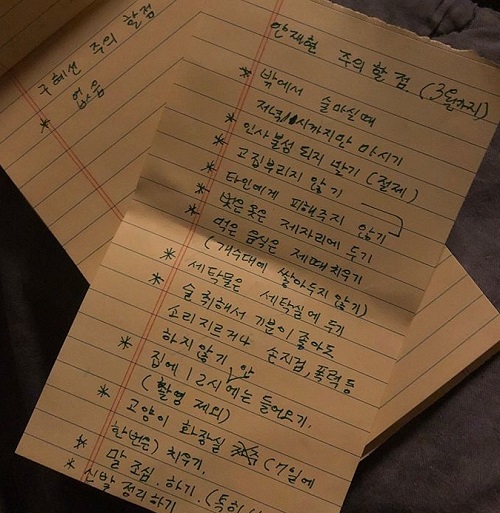 구혜선 주의 할점
* 없음
안재현 주의할점 (3월까지)
* 밖에서 술마실때
저녁 11시까지만 마시기
* 인사불성 되지 말기 (절제)
* 고집부리지 않기
* 타인에게 피해주지 않기
* 벗은 옷은 제자리에 두기
* 먹은 음식은 제때 치우기
(개수대에 쌓아두지 않기)
* 세탁물은 세탁실에 두기
* 술 취해서 기분이 좋아도
소리지르거나 손찌검, 폭력 등
하지 않기
* 집에 12시 안에는 들어오기.
(촬영 제외)
* 고양이 화장실 (7일에
한번은) 치우기.
* 말 조심. 하기. (특히
* 신발 정리하기